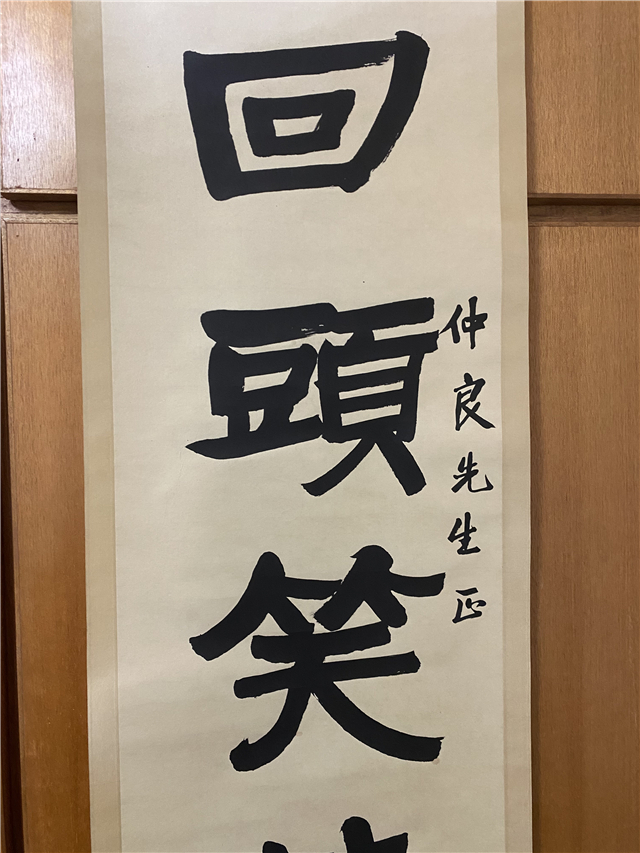 回頭笑
仲良先生正